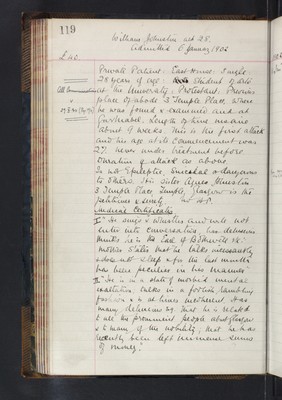 119
William Johnston aet 28.
Admitted 6 January 1902
£40
Private Patient: East House: Single
28 years of age: Student of Arts
at the University: Protestant: Previous
place of abode 3 Temple Place, where
he was found & examined and at
Gartnavel. Length of time insane
about 9 weeks. This is the first attack
and his age at its commencement was
27: never under treatment before
Duration of attack as above.
Is not Epileptic, suicidal or dangerous
to others. His sister Agnes Johnston
3 Temple Place, Temple, Glasgow is the
petitioner
Medical Certificates
I. He sings & whistles and will not
enter into conversation, has delusions
thinks he is the Earl of Bothwell &c
mother States that he talks incessantly
& does not sleep & for the last months
has been peculiar in his manner.
II. He is in a state of morbid mental
exaltation, talks in a foolish, rambling
fashion & is at times incoherent. Has
many delusions e.g. that he is related
to all the prominent people about Glasgow
& to many of the nobility; that he has
recently been left immense sums
of money.